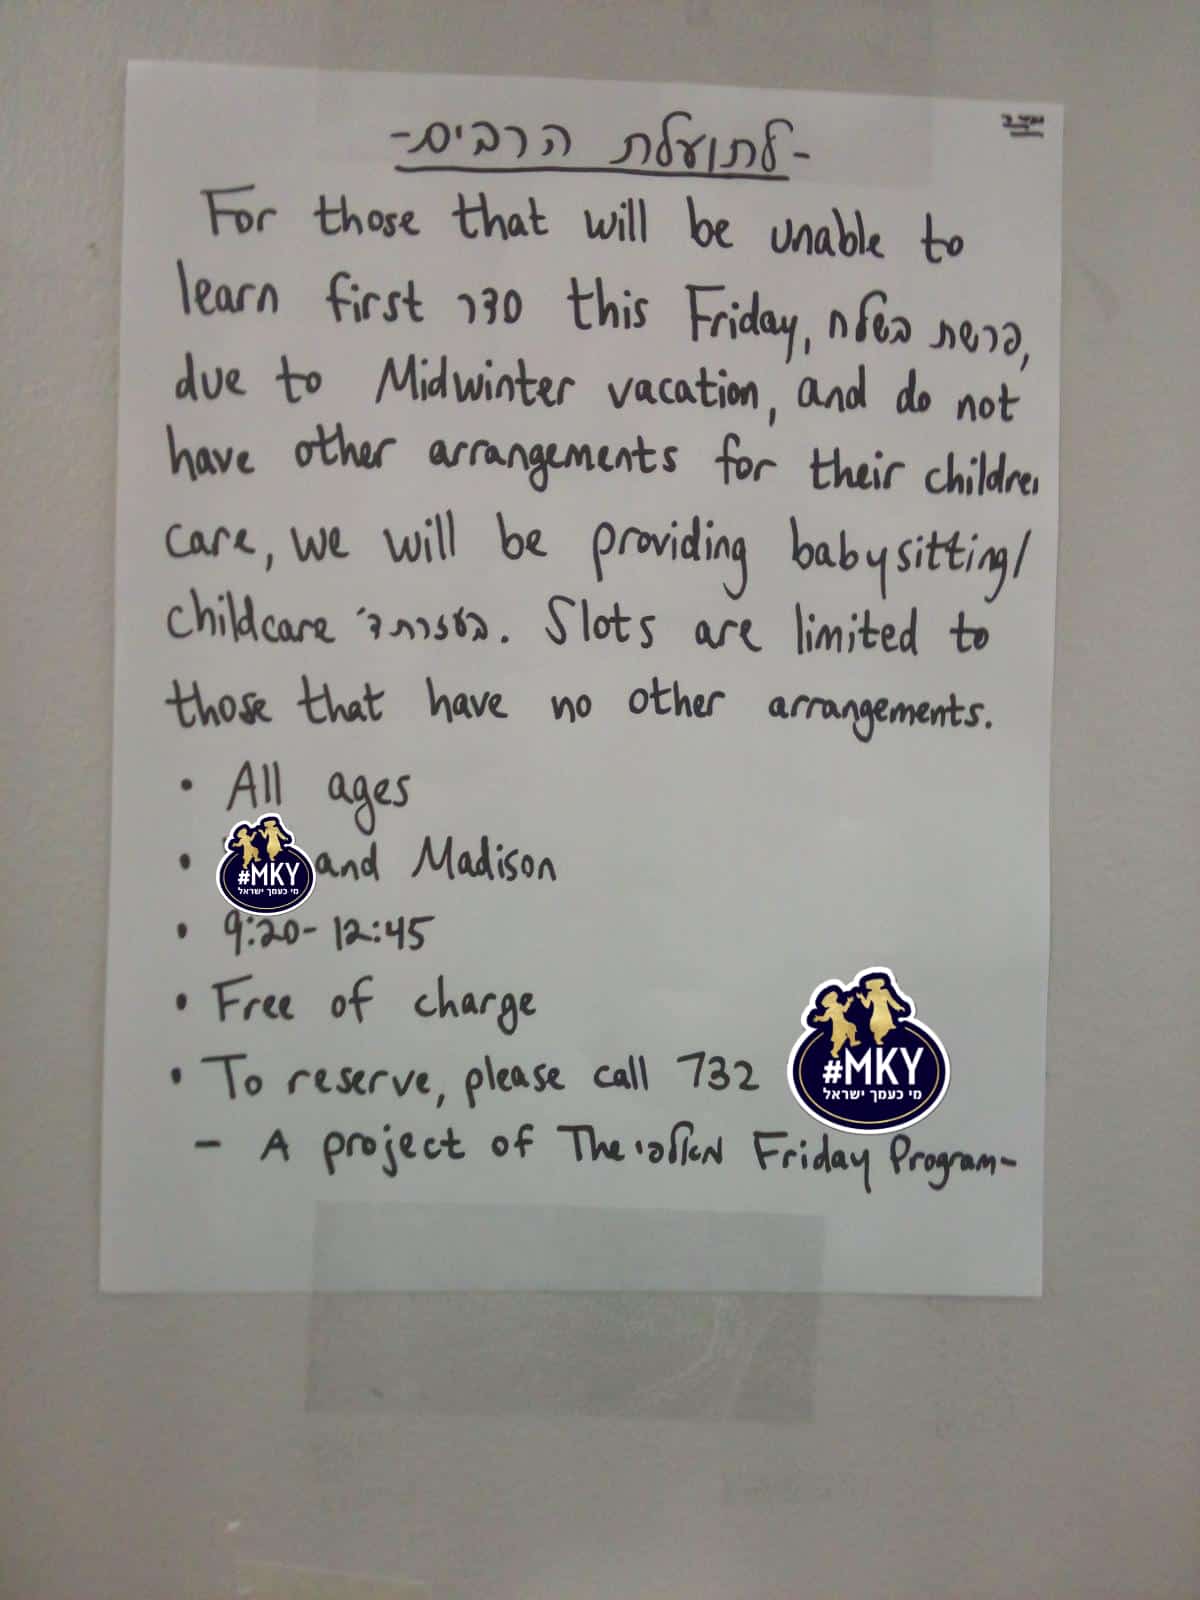 -לתועלת הרבים-
For those that will be unable to
learn first סדר this Friday, פרשת בשלח,
due to Midwinter vacation, and do not
have other arrangements for their children
care, we will be providing babysitting/
childcare בעזרת ד'. Slots are limited to
those that have no other arrangements.
• All ages
• and Madison
#MKY
מי כעמך ישראל
• 9:20-12:45
• Free of charge
• To reserve, please call 732
#MKY
מי כעמך ישראל
- A project of The Friday Program-